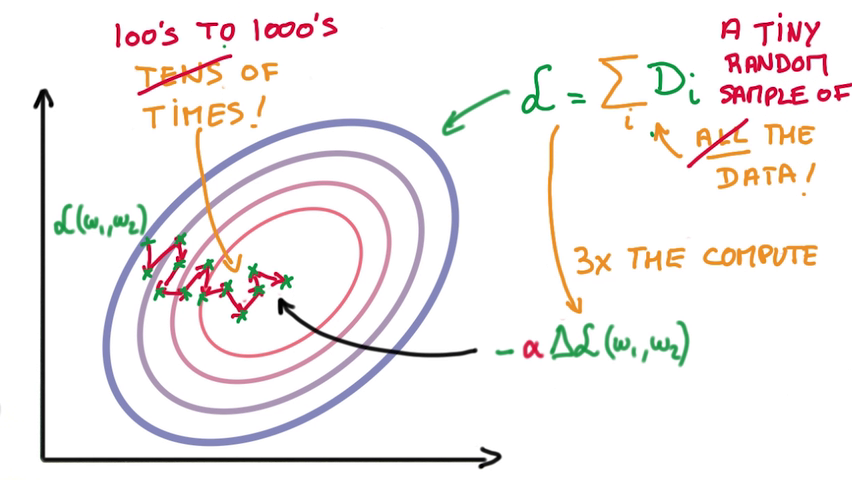 100's TO 1000's
TENS OF
TIMES!
ℒ = ∑i Di
A TINY
RANDOM
SAMPLE OF
ALL THE
DATA!
ℒ(ω1,ω2)
3x THE COMPUTE
-α Δℒ(ω1,ω2)